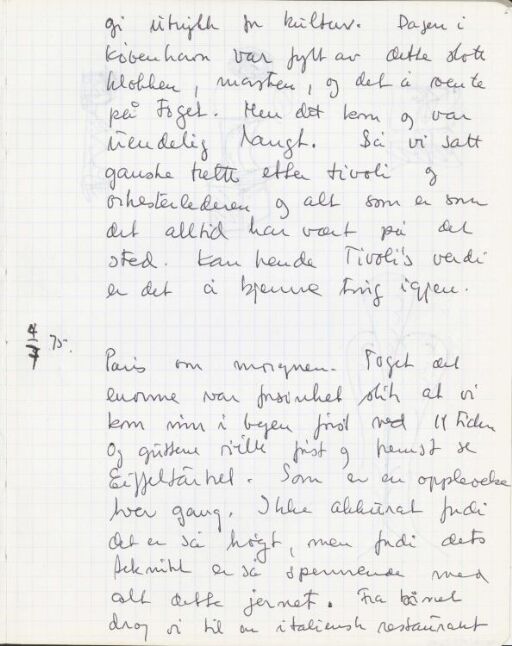 gi uttrykk for kultur. Dagen i
København var fylt av dette slott
klokken, marsten, og det å vente
på Toget. Men det kom og var
uendelig langt. Så vi satt
ganske trette etter tivoli og
orkesterlederen og alt som er som
det alltid har vært på det
sted. Kan hende Tivoli's verdi
er det å kjenne ting igjen.
4/7 75.
Paris om morgnen. Toget det
enorme var forsinket slik at vi
kom inn i byen først ved 11 tiden
Og guttene ville først og fremst se
Eiffeltårnet. Som er en opplevelse
hver gang. Ikke akkurat fordi
det er så høgt, men fordi dets
teknikk er så spennende med
alt dette jernet. Fra tårnet
drog vi til en italiensk restaurant